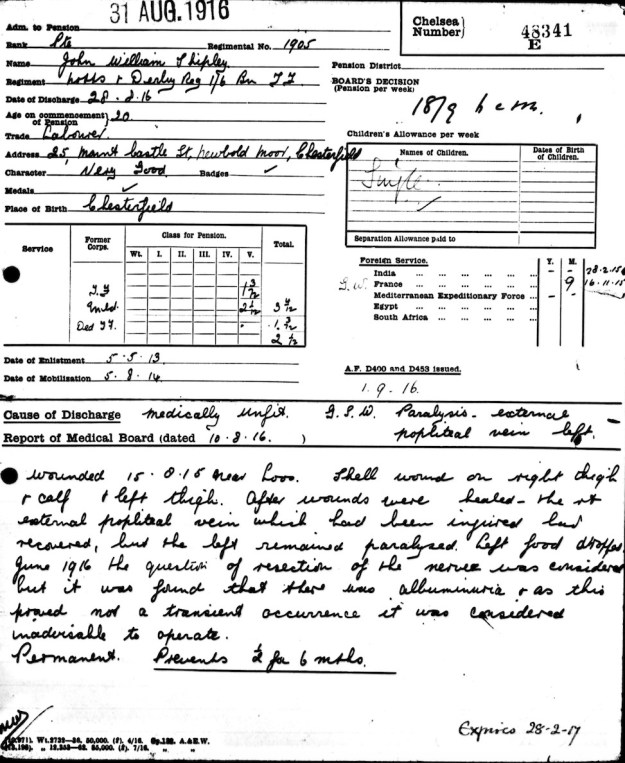 31 AUG. 1916
Adm. to Pension
Chelsea Number} 48341 E
Rank Pte Regimental No. 1905
Name John William Shipley
Regiment Notts & Derby Reg 1/6 Bn T F
Date of Discharge 28 . 8 . 16
Age on commencement of Pension} 20
Trade Labourer
Address 25, Mount Castle St, Newbold Moor, Chesterfield
Character Very Good Badges ✓
Medals ✓
Place of Birth Chesterfield
Pension District
BOARD'S DECISION
(Pension per week)
18/9
Children's Allowance per week
Names of Children. Dates of Birth of Children.
Single
✓
Separation Allowance paid to
Service Former Corps. Class for Pension. Total.
Wt. I. II. III. IV. V.
T.F 1 3/12
2 1/12 3 4/12
Ded T.F. 1 3/12
2 1/12
Foreign Service. Y. M.
India ... ... ... ... ... - -
G.W. France ... ... ... ... ... 9 28.2.15
16.11.15
Mediterranean Expeditionary Force ... - -
Egypt ... ... ... ... ...
South Africa ... ... ... ...
Date of Enlistment 5 . 5 . 13
Date of Mobilisation 5 . 8 . 14
A.F. D400 and D453 issued.
1 . 9 . 16.
Cause of Discharge Medically unfit. G.S.W. Paralysis - external
popliteal vein left.
Report of Medical Board (dated 10 . 8 . 16. )
Wounded 15 . 8 . 15 near Loos. Shell wound on right thigh
& calf & left thigh. After wounds were healed - the rt
external popliteal vein which had been injured had
recovered, but the left remained paralysed. Left food dropped
June 1916 the question of resection of the nerve was considered
but it was found that there was albuminuria & as this
proved not a transient occurrence it was considered
inadvisable to operate.
Permanent. Prevents 1/2 for 6 mths.
Expires 28-2-17
Wt. 2732—34. 50,000. (2). 4/16. Gp. 128. A.&E.W.
„ 12,352—42. 55,000. (2). 7/16. „ „